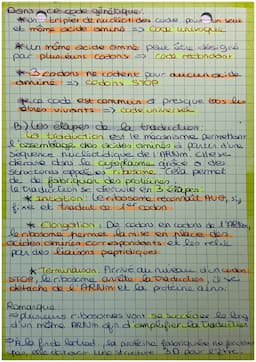 Dans ce code génétique:
* un triplet de nucléotides code pour un seul
et même acide aminé => Code univoque
* un même acide aminé peut être désigné
par plusieurs codons => Code redondant
* 3 codons ne codent pour aucun acide
aminé => codons STOP
* ce code est commun à presque tous les
êtres vivants => code universel
B) Les étapes de la traduction
La traduction est le mécanisme permettant
l'assemblage des acides aminés à partir d'une
séquence nucléotidique de l'ARNm. Elle se
déroule dans le cytoplasme grâce à des
structures appelées ribosome. Cela permet
de fabriquer des protéines.
la traduction se déroule en 3 étapes:
* Initiation: Le ribosome reconnaît AUG, s'y
fixe et traduit le 1er codon
* Elongation: De codon en codon de l'ARNm,
le ribosome permet la mise en place des
acides aminés correspondants et les relie
par des liaisons peptidiques
* Terminaison: Arrivé au niveau d'un codon
STOP, le ribosome arrête la traduction, il se
détache de l'ARNm et la protéine ainsi
Remarque
-> plusieurs ribosomes vont se succéder le long
d'un même ARNm afin d'amplifier la traduction
-> A la fin la protéine fabriquée ne fonctionne
une structure 3D pour